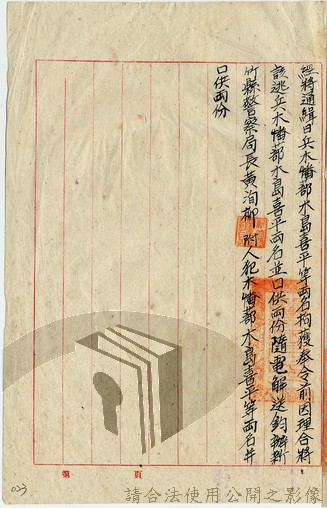 經將通緝日兵木幡蔀水島喜平等兩名拘獲奉令前因理合將
該逃兵木幡蔀水島喜平兩名並口供兩份隨電解送鈞辦新
竹縣警察局長黃洵柳 附人犯木幡蔀水島喜平等兩名并
口供兩份
第 頁
023
請合法使用公開之影像